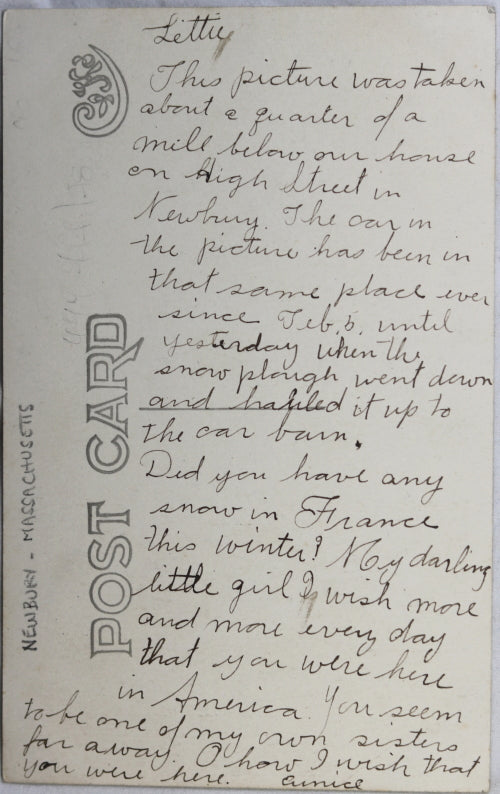 Lettie
This picture was taken
about a quarter of a
mill below our house
on High Street in
Newbury. The car in
the picture has been in
that same place ever
since Feb. 5, until
yesterday when the
snow plough went down
and hauled it up to
the car barn.
Did you have any
snow in France
this winter? My darling
little girl I wish more
and more every day
that you were here
in America. You seem
to be one of my own sisters
far away. O how I wish that
you were here. Eunice
POST CARD
NEWBURY - MASSACHUSETTS